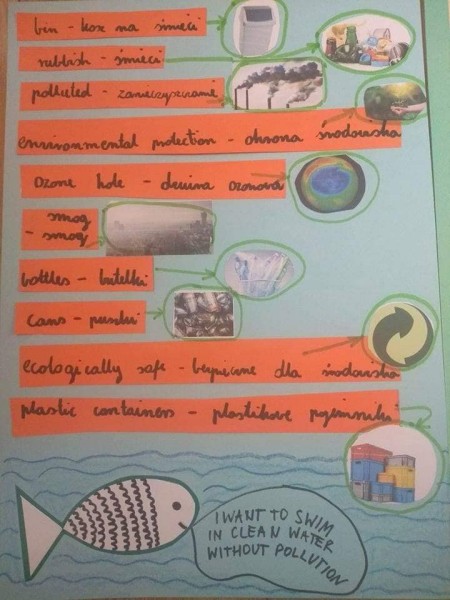 bin - kosz na śmieci
rubbish - śmieci
polluted - zanieczyszczenie
environmental protection - ochrona środowiska
ozone hole - dziura ozonowa
smog
- smog
bottles - butelki
cans - puszki
ecologically safe - bezpieczne dla środowiska
plastic containers - plastikowe pojemniki
I WANT TO SWIM
IN CLEAN WATER
WITHOUT POLLUTION